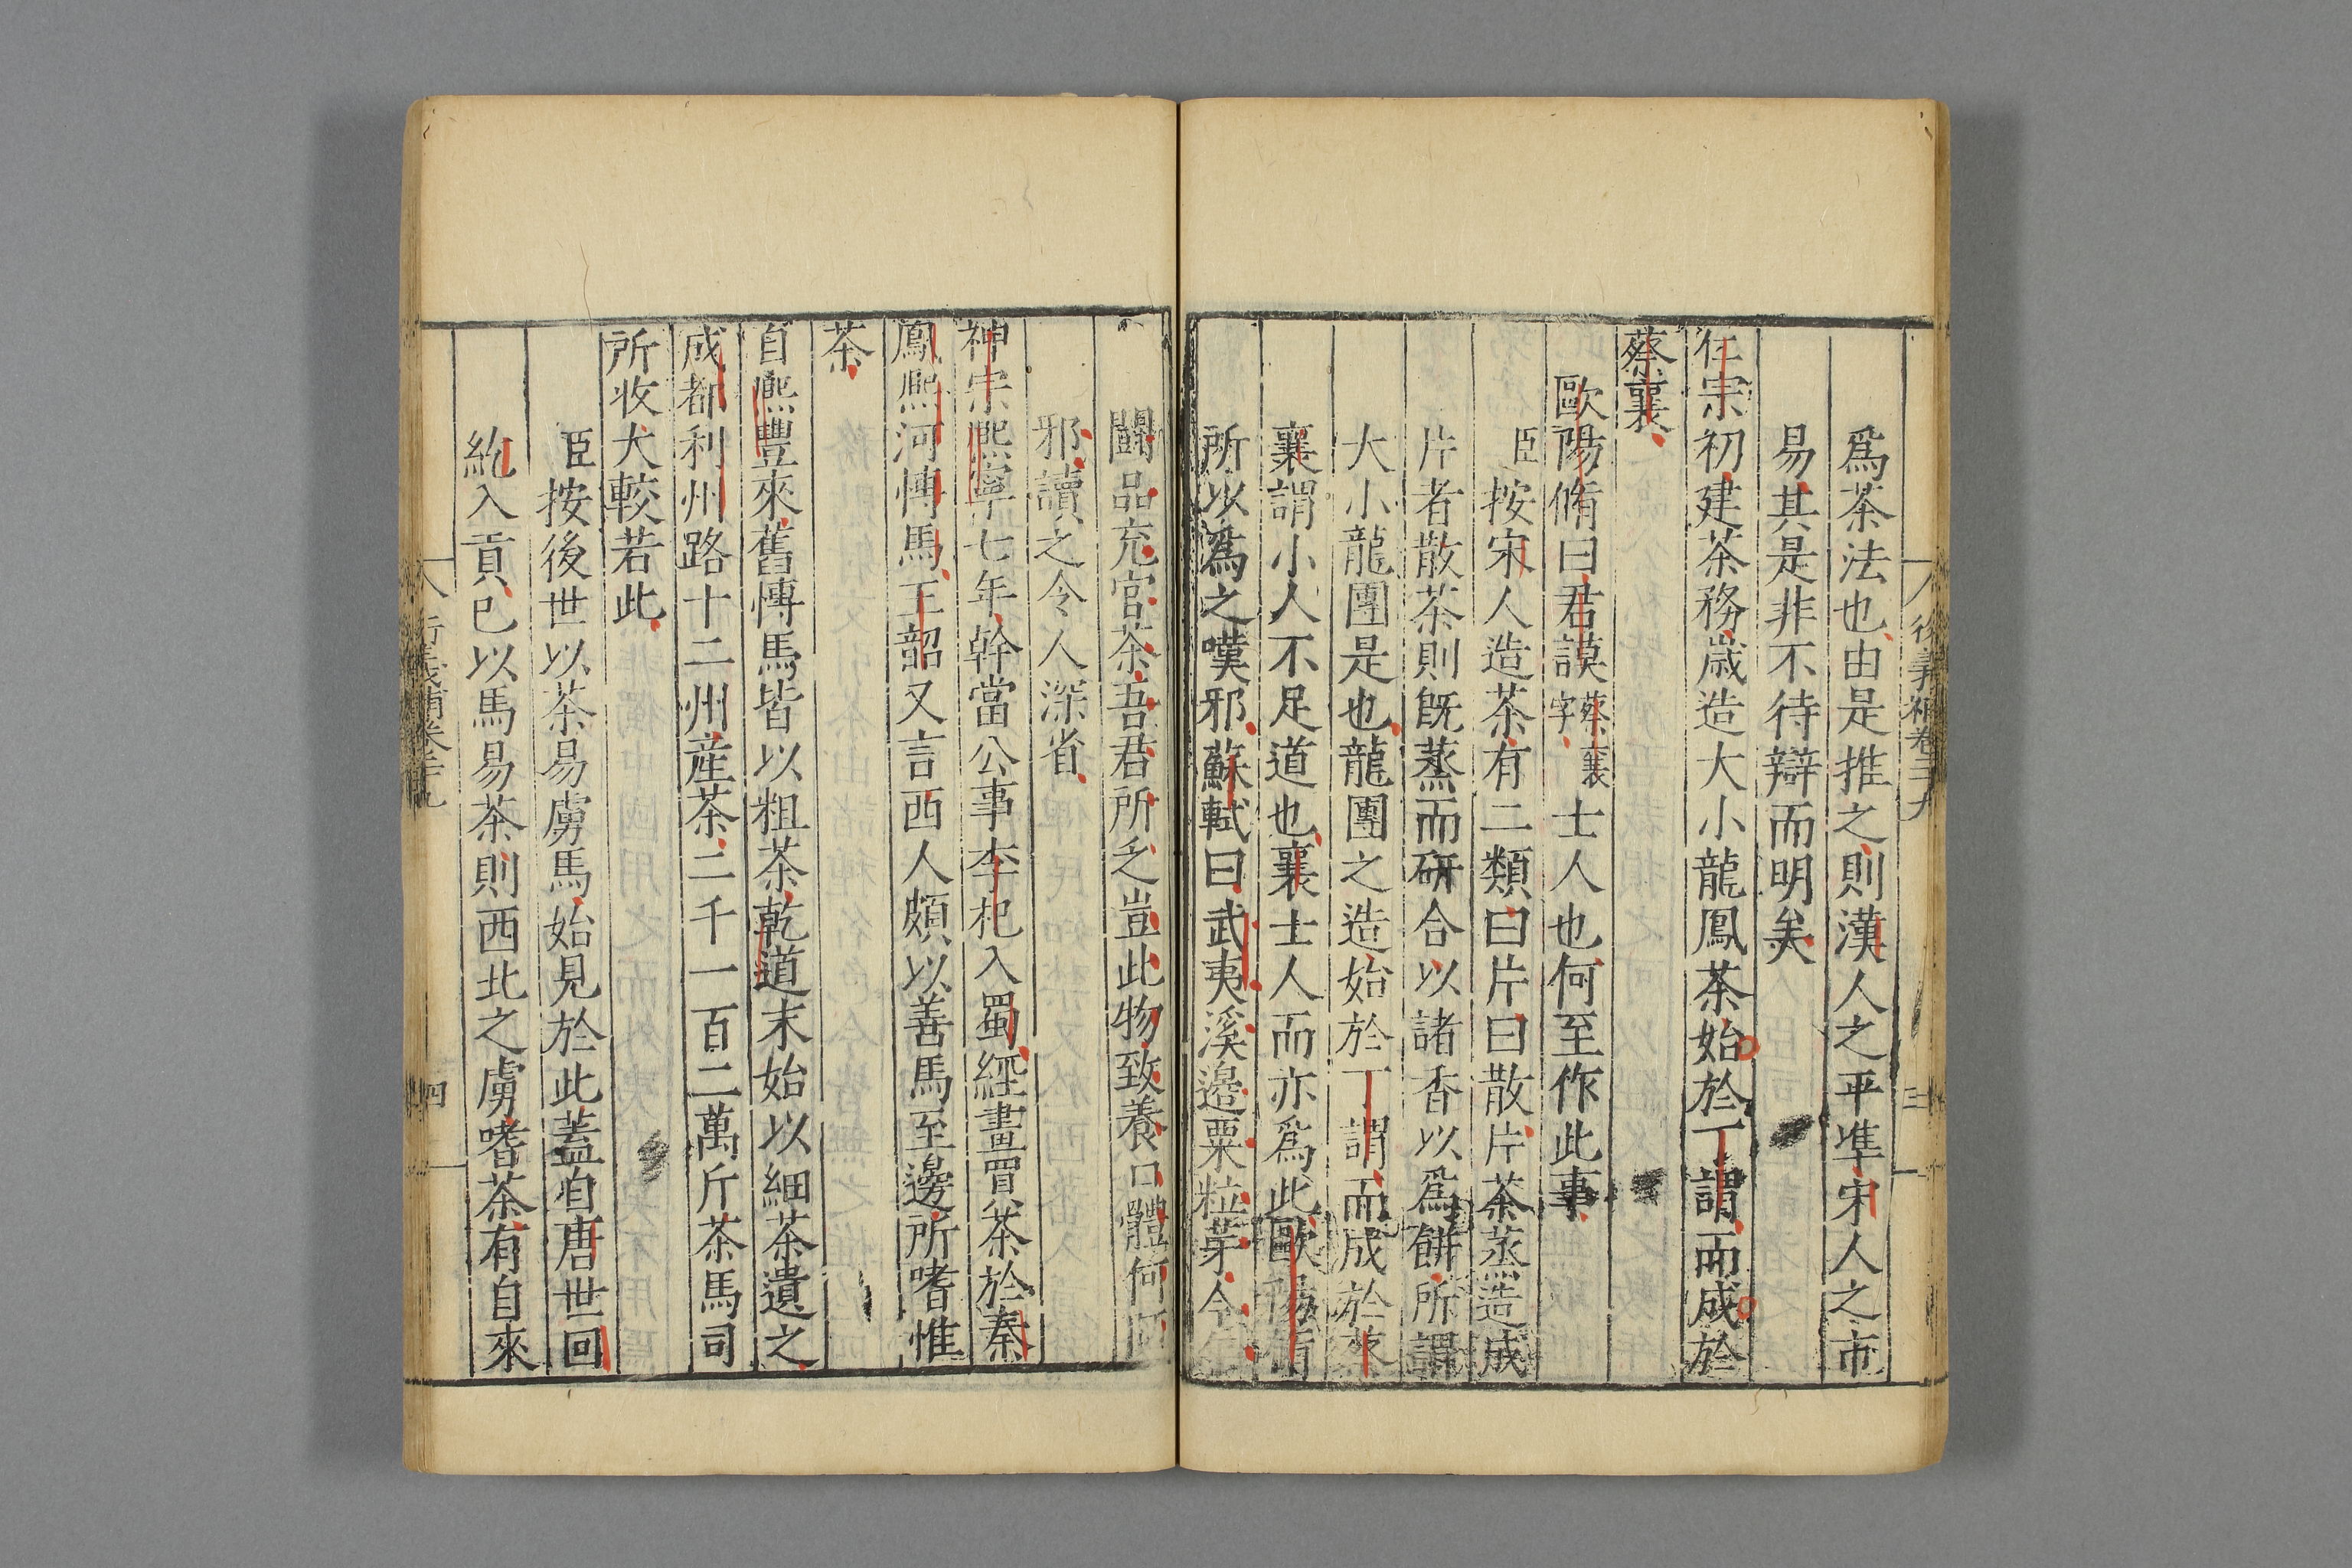 後義補卷二十九
三
爲茶法也由是推之則漢人之平準宋人之市
易其是非不待辯而明矣
仁宗初建茶務歲造大小龍鳳茶始於丁謂而成於
蔡襄
歐陽脩曰君謨蔡襄字士人也何至作此事
臣按宋人造茶有二類曰片曰散片茶蒸造成
片者散茶則旣蒸而硏合以諸香以爲餅所謂
大小龍團是也龍團之造始於丁謂而成於蔡
襄謂小人不足道也襄士人而亦爲此歐陽脩
所以爲之嘆邪蘇軾曰武夷溪邊粟粒芽今年
鬭品充官茶吾君所乏豈此物致養口體何陋
邪讀之令人深省
神宗熙寧七年幹當公事李杞入蜀經畫買茶於秦
鳳熙河博馬王韶又言西人頗以善馬至邊所嗜惟
茶
自熙豐來舊博馬皆以粗茶乾道末始以細茶遺之
成都利州路十二州產茶二千一百二萬斤茶馬司
所收大較若此
臣按後世以茶易虜馬始見於此蓋自唐世回
紇入貢已以馬易茶則西北之虜嗜茶有自來
行義補卷二十九
四